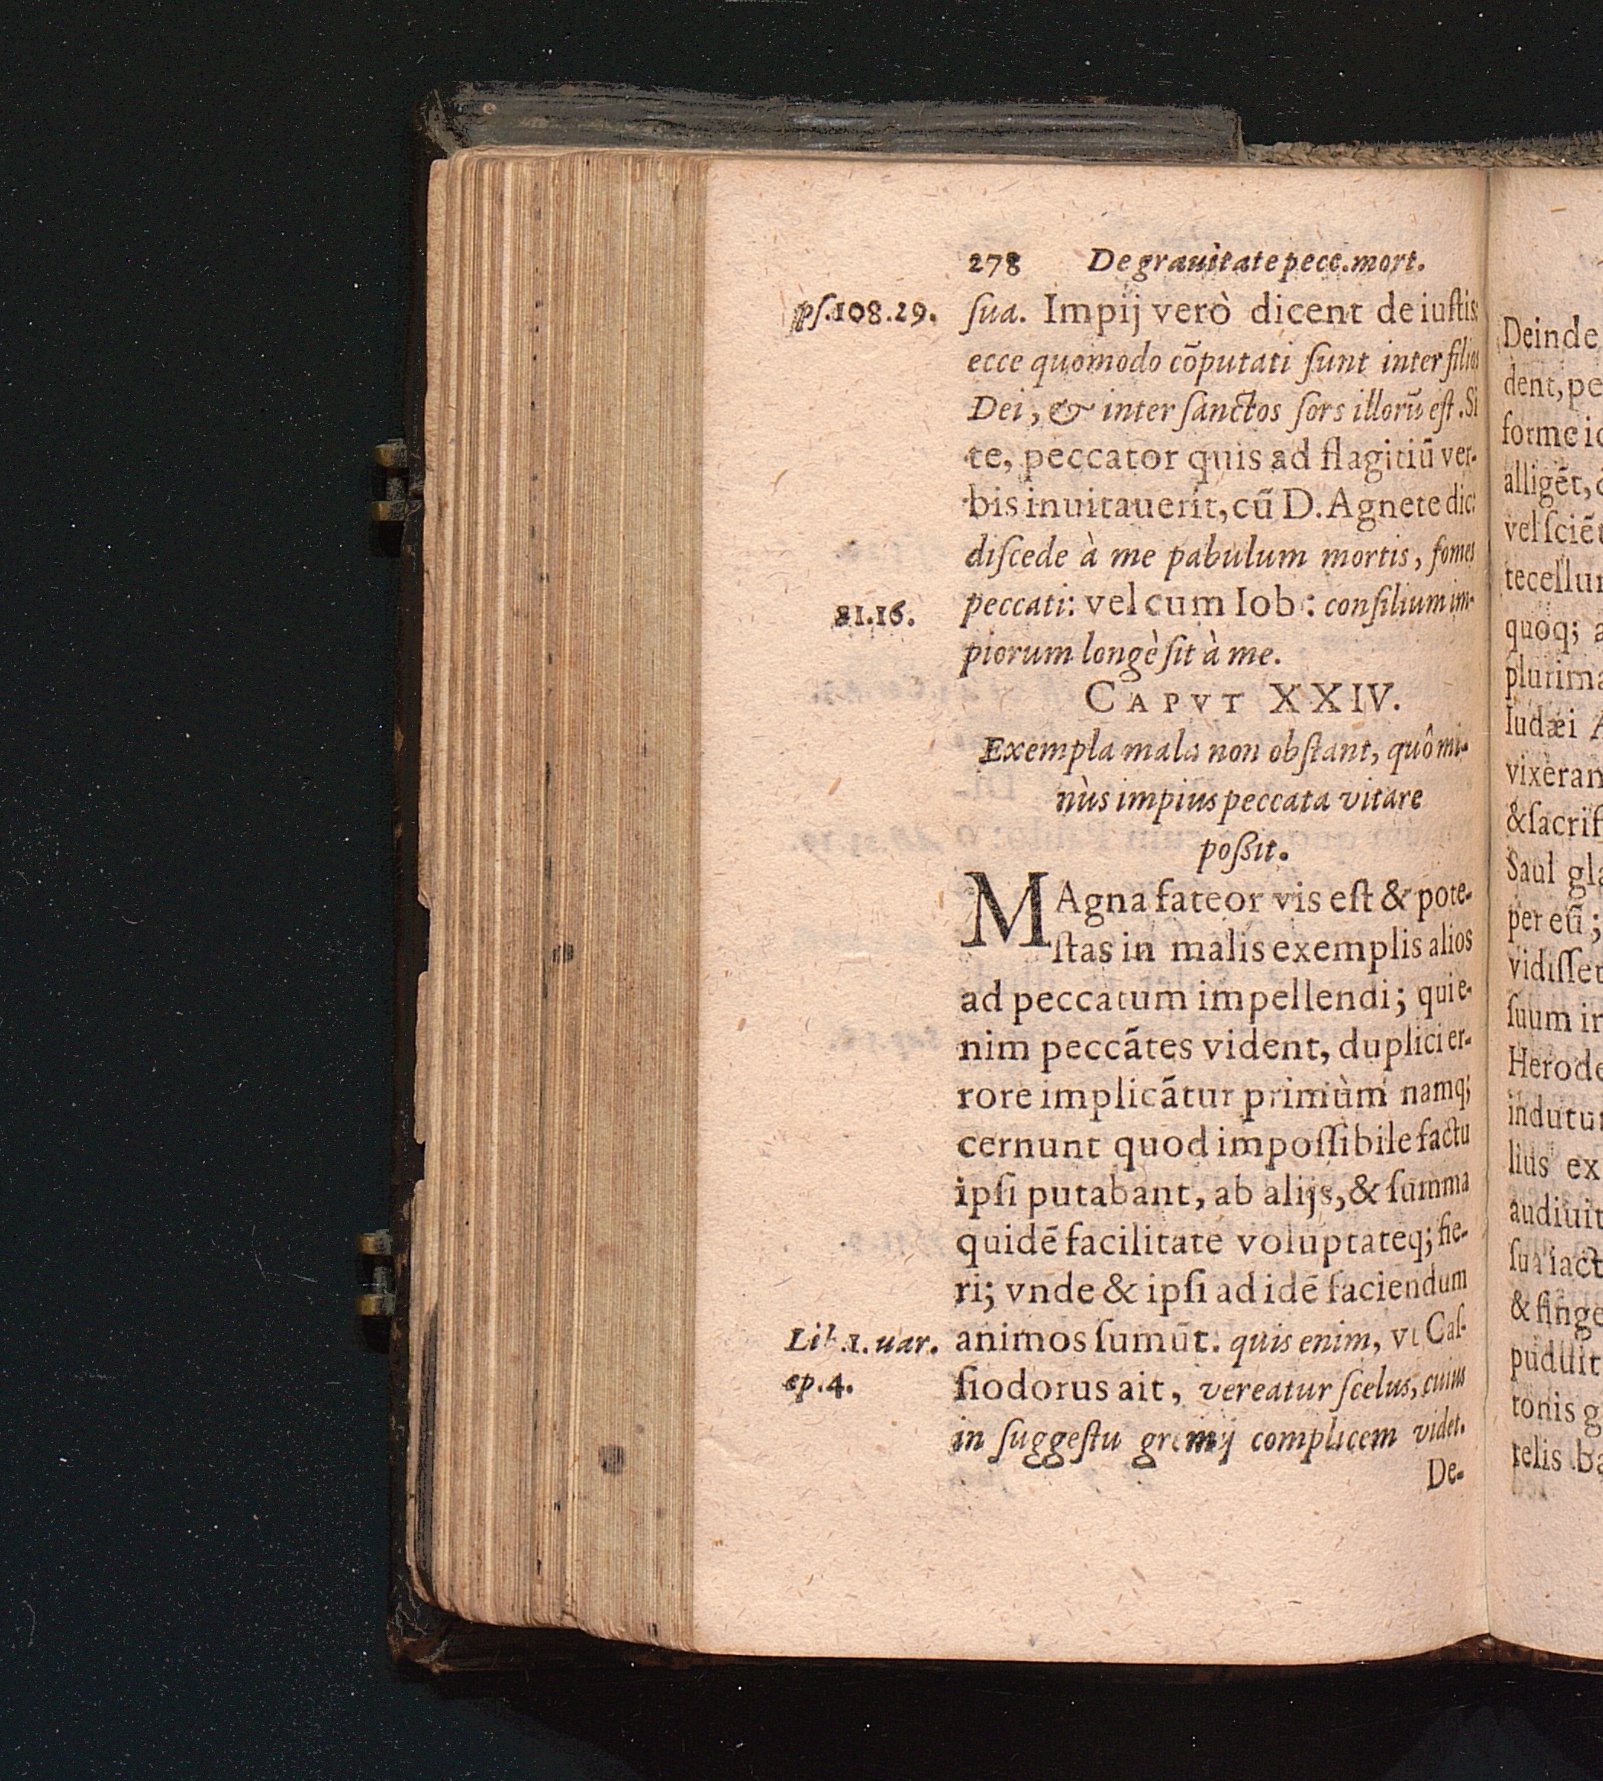 278 De grauitate pecc. mort.
ps.108.29. sua. Impij verò dicent de iustis:
ecce quomodo cõputati sunt inter filios
Dei, & inter sanctos sors illorũ est. Si
te, peccator quis ad flagitiũ ver-
bis inuitauerit, cũ D. Agnete dic:
discede à me pabulum mortis, fomes
21.16. peccati: vel cum Iob: consilium im-
piorum longè sit à me.
CAPVT XXIV.
Exempla mala non obstant, quô mi-
nùs impius peccata vitare
poßit.
MAgna fateor vis est & pote-
stas in malis exemplis alios
ad peccatum impellendi; qui e-
nim peccãtes vident, duplici er-
rore implicãtur primùm namq;
cernunt quod impossibile factu
ipsi putabant, ab alijs, & summa
quidẽ facilitate voluptateq; fie-
ri; vnde & ipsi ad idẽ faciendum
Lib.1. uar. animos sumũt. quis enim, vt Cas-
ep.4. siodorus ait, vereatur scelus, cuius
in suggestu gremij complicem videt.
De-
Deinde
dent, pe
forme i
alligẽt,
vel sciẽt
tecellu
quoq; a
plurima
Iudæi A
vixeran
& sacrif
Saul gla
per eũ;
vidisset
suum in
Herode
indutu
lius ex
audiuit
sua iact
& finge
puduit
tonis g
telis ba